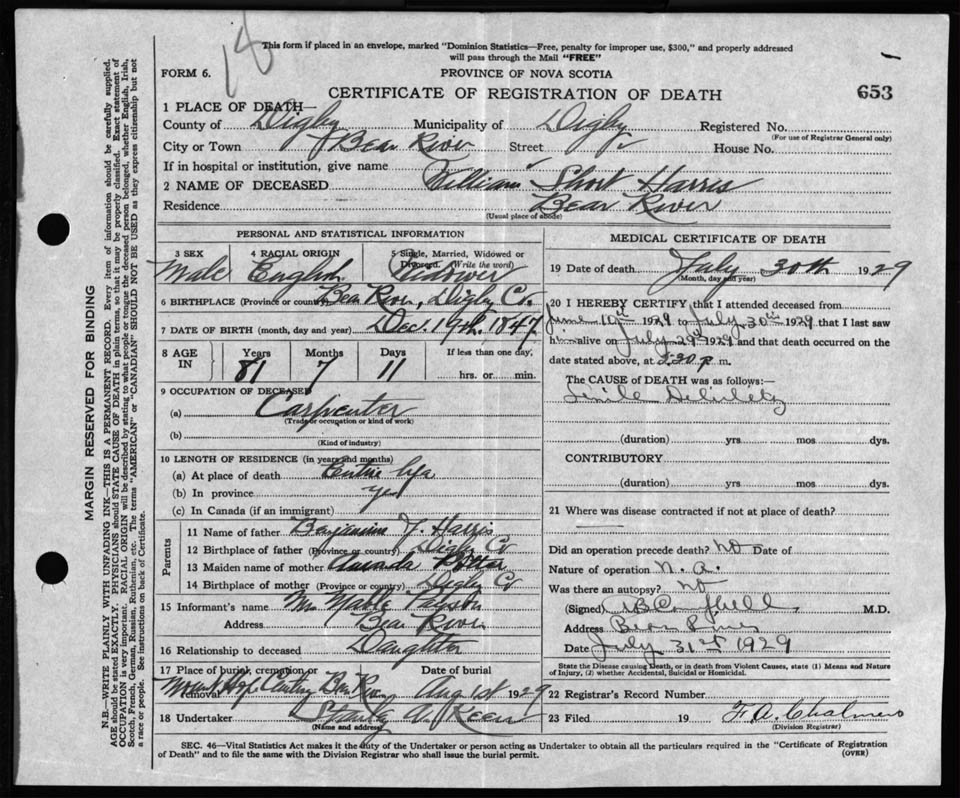 18
This form if placed in an envelope, marked "Dominion Statistics—Free, penalty for improper use, $300," and properly addressed
will pass through the Mail "FREE"
FORM 6.
PROVINCE OF NOVA SCOTIA
CERTIFICATE OF REGISTRATION OF DEATH
653
1 PLACE OF DEATH—
County of Digby Municipality of Digby Registered No.
(For use of Registrar General only)
City or Town Bear River Street House No.
If in hospital or institution, give name
2 NAME OF DECEASED William Short Harris
Residence Bear River
(Usual place of abode)
PERSONAL AND STATISTICAL INFORMATION
3 SEX 4 RACIAL ORIGIN 5 Single, Married, Widowed or Divorced. (Write the word)
Male English Widower
6 BIRTHPLACE (Province or country) Bear River, Digby Co.
7 DATE OF BIRTH (month, day and year) Dec. 19th. 1847
8 AGE IN Years Months Days If less than one day,
81 7 11 hrs. or min.
9 OCCUPATION OF DECEASED
(a) Carpenter
(Trade or occupation or kind of work)
(b)
(Kind of industry)
10 LENGTH OF RESIDENCE (in years and months)
(a) At place of death Entire life
(b) In province yes
(c) In Canada (if an immigrant)
Parents
11 Name of father Benjamin F. Harris
12 Birthplace of father (Province or country) Digby Co
13 Maiden name of mother Amanda Potter
14 Birthplace of mother (Province or country) Digby Co
15 Informant's name Mrs Payson
Address Bear River
16 Relationship to deceased Daughter
17 Place of burial, cremation or removal Date of burial
Mount Hope Bear River Aug 1st 1929
18 Undertaker Keen
(Name and address)
MEDICAL CERTIFICATE OF DEATH
19 Date of death July 30th 1929
(Month, day and year)
20 I HEREBY CERTIFY that I attended deceased from
June 10th 1929 to July 30th 1929 that I last saw
him alive on July 29th 1929 and that death occurred on the
date stated above, at 5.30 p. m.
The CAUSE of DEATH was as follows:—
Senile Debility
(duration) yrs mos dys.
CONTRIBUTORY
(duration) yrs mos dys.
21 Where was disease contracted if not at place of death?
Did an operation precede death? no Date of
Nature of operation n.a.
Was there an autopsy? no
(Signed) Campbell M.D.
Address Bear River
Date July 31st 1929
State the Disease causing Death, or in death from Violent Causes, state (1) Means and Nature
of Injury, (2) whether Accidental, Suicidal or Homicidal.
22 Registrar's Record Number
23 Filed 19 F. A. Chalmers
(Division Registrar)
SEC. 46—Vital Statistics Act makes it the duty of the Undertaker or person acting as Undertaker to obtain all the particulars required in the "Certificate of Registration
of Death" and to file the same with the Division Registrar who shall issue the burial permit.
(OVER)
MARGIN RESERVED FOR BINDING
N.B.—WRITE PLAINLY WITH UNFADING INK—THIS IS A PERMANENT RECORD. Every item of information should be carefully supplied.
AGE should be stated EXACTLY. PHYSICIANS should STATE CAUSE OF DEATH in plain terms, so that it may be properly classified. Exact statement of
OCCUPATION is very important. RACIAL ORIGIN will be described by stating to what people or tongue the deceased person belonged, whether English, Irish,
Scotch, French, German, Russian, Ruthenian, etc. The terms "AMERICAN" or "CANADIAN" SHOULD NOT BE USED as they express citizenship but not
a race or people. See instructions on back of Certificate.